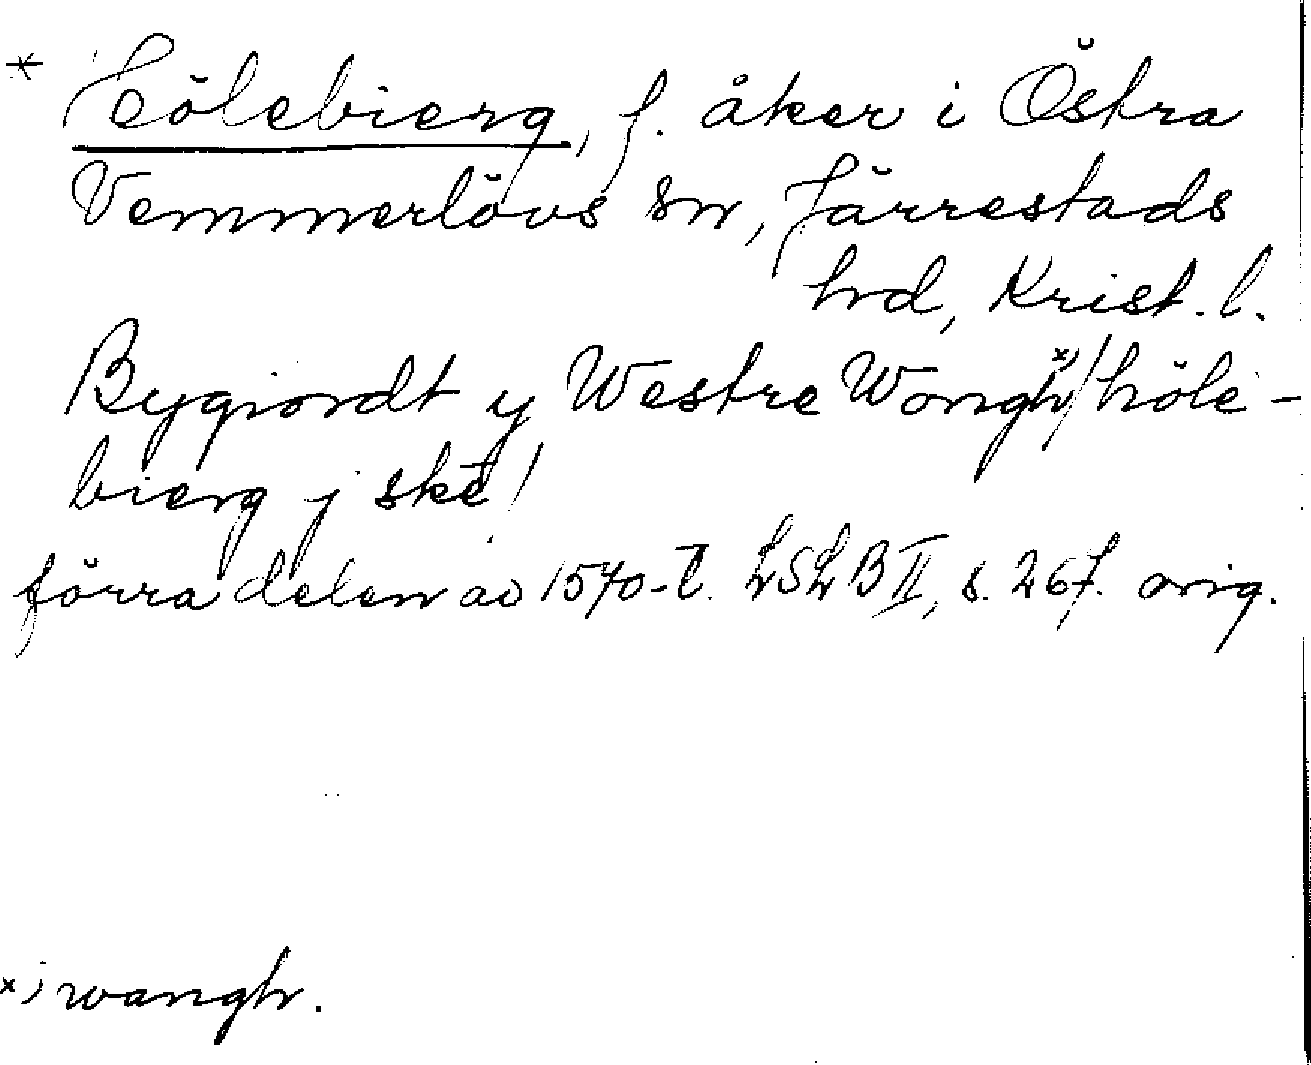 * Hölebierg, f. åker i Östra
Vemmerlövs sn, Järrestads
hrd, Krist. l.
Bygiordt y Westre Wongh x) / höle-
bierg j sket /
förra delen av 1570-t. LSLB II, s. 267. orig.
x) wangh.